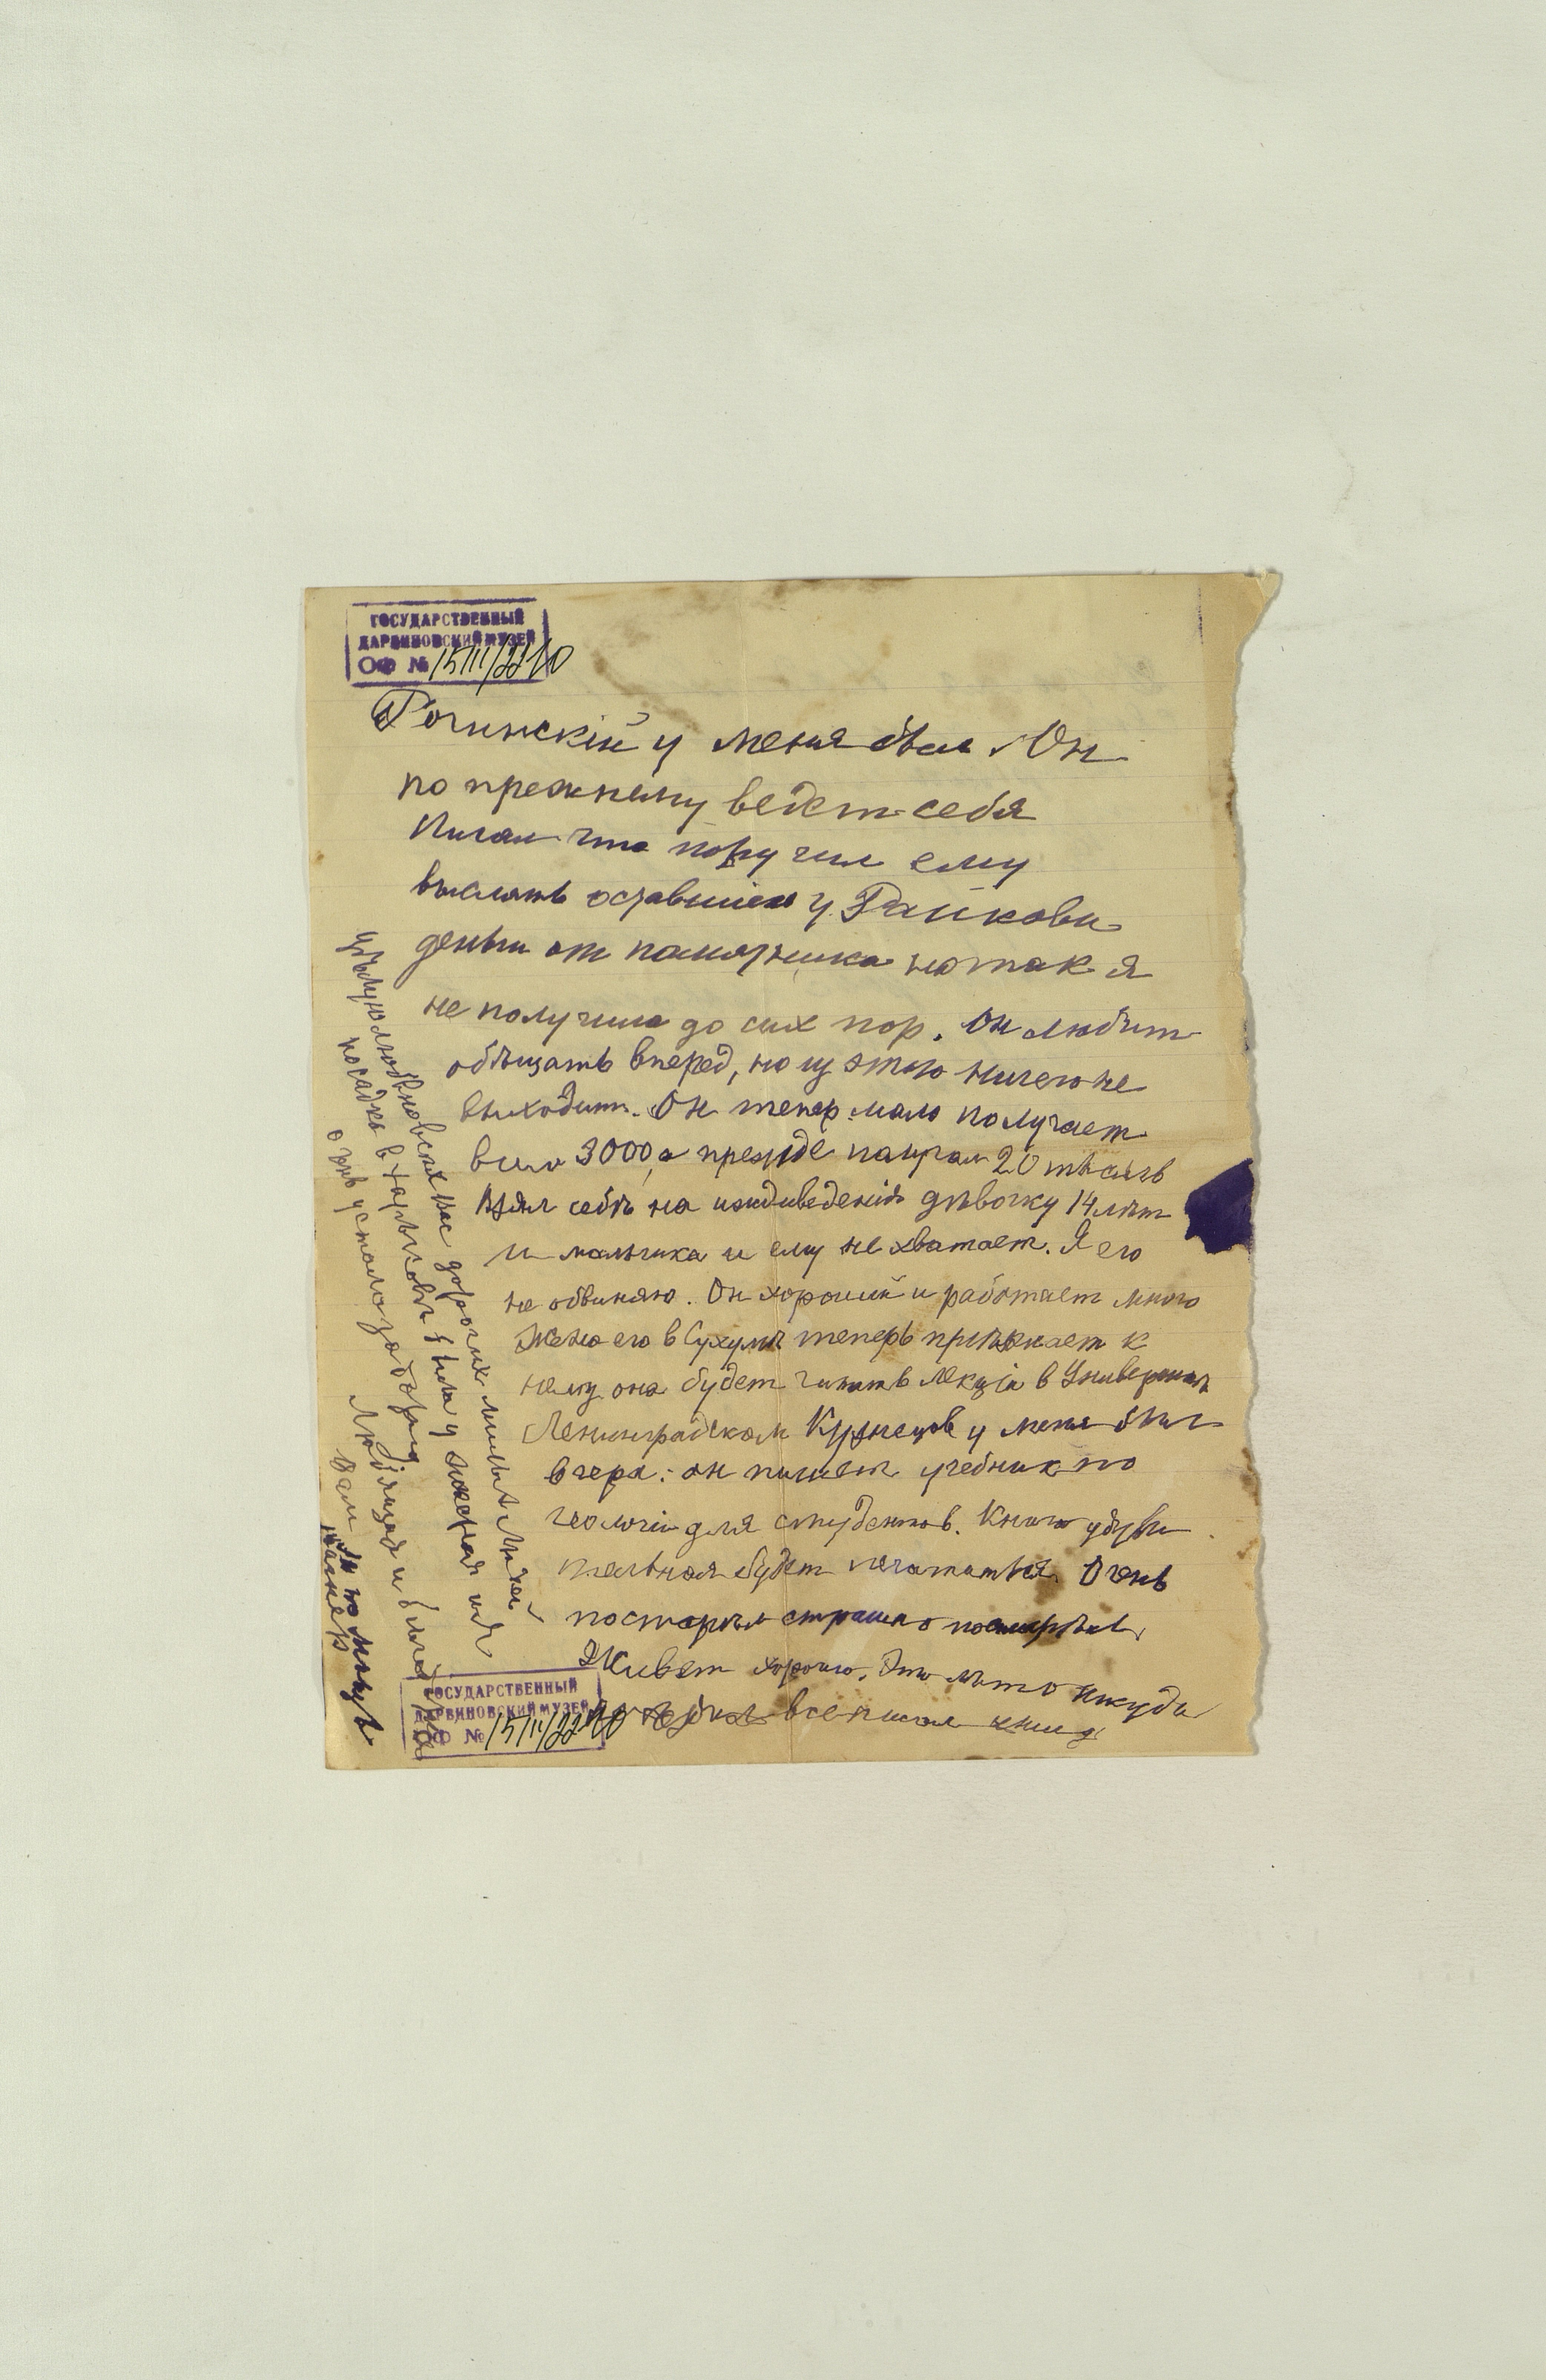 ГОСУДАРСТВЕННЫЙ
ДАРВИНОВСКИЙ МУЗЕЙ
ОФ № 15111/2210
Рогинскій у меня был. Он
по прежнему ведет себя
Писал что поручил ему
выслать оставшіеся у Райкова
деньги от памятника но так я
не получила до сих пор. Он любит
обѣщать вперед, но из этого ничего не
выходит. Он тепер мало получает
всего 3000, а прежде получал 20 тысячъ
Взял себѣ на иждивеніе дѣвочку 14 лѣт
и мальчика и ему не хватает. Я его
не обвиняю. Он хороший и работает много
Жена его в Сухумѣ теперь пріѣзжает к
нему она будет читать лекціи в Университетѣ
Ленинградском Кузнецов у меня был
вчера: он пишет учебник по
геологіи для студентов. Книга удиви
тельная будет печататься. Очень
постарѣл страшно
Живет хорошо. Это лѣто никуда
не все писал книгу
Цѣлую вас дорогих милых
посадкѣ в Харьковѣ была ужасная и я
очень устала
Любящая и
Вам
ГОСУДАРСТВЕННЫЙ
ДАРВИНОВСКИЙ МУЗЕЙ
ОФ № 15111/2210